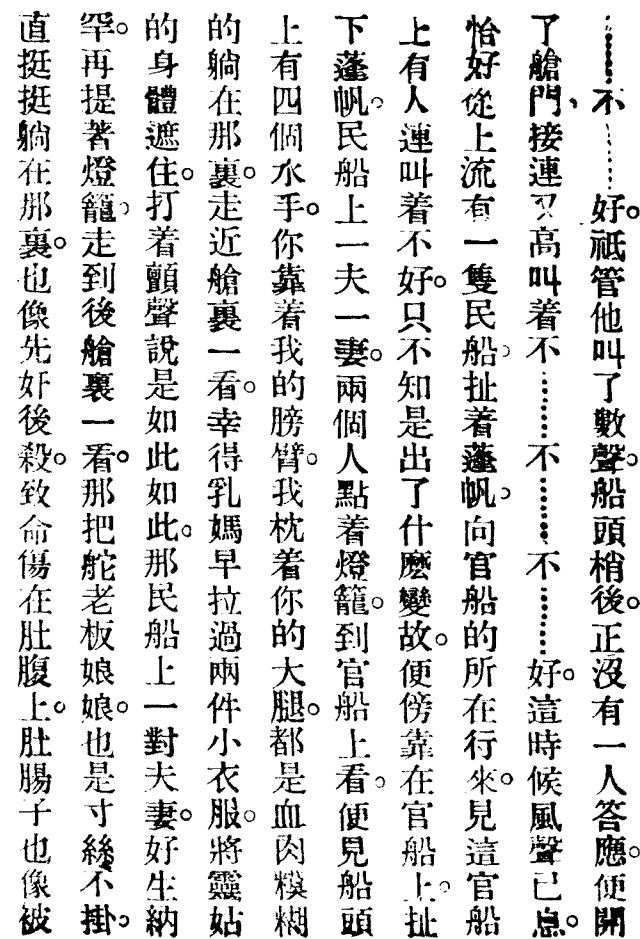 ………不………好。祇管他叫了數聲。船頭梢後。正沒有一人答應。便開
了艙門、接連又高叫着不………不………不………好。這時候風聲已息。
恰好從上流有一隻民船。扯着蓬帆。向官船的所在行來。見這官船
上有人連叫着不好。只不知是出了什麽變故。便傍靠在官船上。扯
下蓬帆。民船上一夫一妻。兩個人點着燈籠。到官船上看。便見船頭
上有四個水手。你靠着我的膀臂。我枕着你的大腿。都是血肉糢糊
的躺在那裏。走近艙裏一看。幸得乳媽早拉過兩件小衣服。將靈姑
的身體遮住。打着顫聲說是如此如此。那民船上一對夫妻。好生納
罕。再提著燈籠。走到後艙裏一看。那把舵老板娘娘。也是寸絲不掛。
直挺挺躺在那裏。也像先奸後殺。致命傷在肚腹上。肚腸子也像被